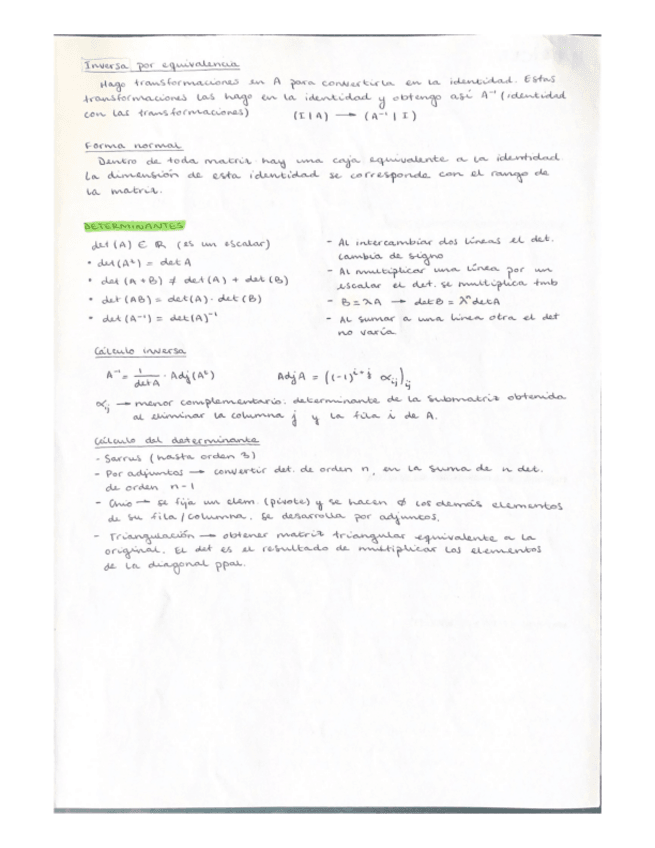 Inversa por equivalencia
Hago transformaciones en A para convertirla en la identidad. Estas
transformaciones las hago en la identidad y obtengo así A⁻¹ (identidad
con las transformaciones) (I | A) → (A⁻¹ | I)
Forma normal
Dentro de toda matriz hay una caja equivalente a la identidad.
La dimensión de esta identidad se corresponde con el rango de
la matriz.
DETERMINANTES
det(A) ∈ ℝ (es un escalar)
• det(Aᵗ) = det A
• det (A + B) ≠ det(A) + det(B)
• det (AB) = det(A) · det(B)
• det (A⁻¹) = det(A)⁻¹
- Al intercambiar dos líneas el det.
cambia de signo
- Al multiplicar una línea por un
escalar el det. se multiplica tmb
- B = λA → det B = λⁿ det A
- Al sumar a una línea otra el det
no varía
Cálculo inversa
A⁻¹ = 1/det A · Adj(Aᵗ) Adj A = ((-1)ⁱ⁺ʲ αij)ij
αij → menor complementario: determinante de la submatriz obtenida
al eliminar la columna j y la fila i de A.
Cálculo del determinante
- Sarrus (hasta orden 3)
- Por adjuntos → convertir det. de orden n, en la suma de n det.
de orden n-1
- Chio → se fija un elem. (pivote) y se hacen 0 los demás elementos
de su fila/columna. Se desarrolla por adjuntos.
- Triangulación → obtener matriz triangular equivalente a la
original. El det es el resultado de multiplicar los elementos
de la diagonal ppal.